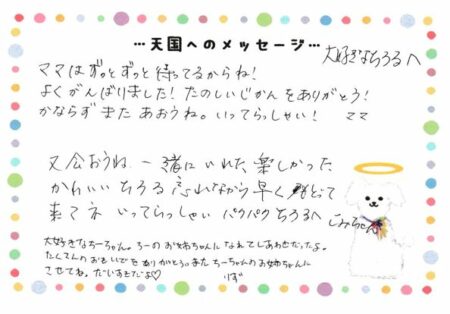 …天国へのメッセージ…
大好きなちろるへ
ママはずっとずっと待ってるからね!
よくがんばりました! たのしいじかんをありがとう!
かならずまたあおうね。いってらっしゃい! ママ
又会おうね 一緒にいれた 楽しかった
かわいいちろる 忘れながら 早く もどって
来てネ いってらっしゃい パクパクちろるへ
大好きなちーちゃん。ちーのお姉ちゃんになれてしあわせだったよ。
たくさんのおもいでをありがとう。また ちーちゃんのお姉ちゃんに
させてね。だいすきだよ♡ りず